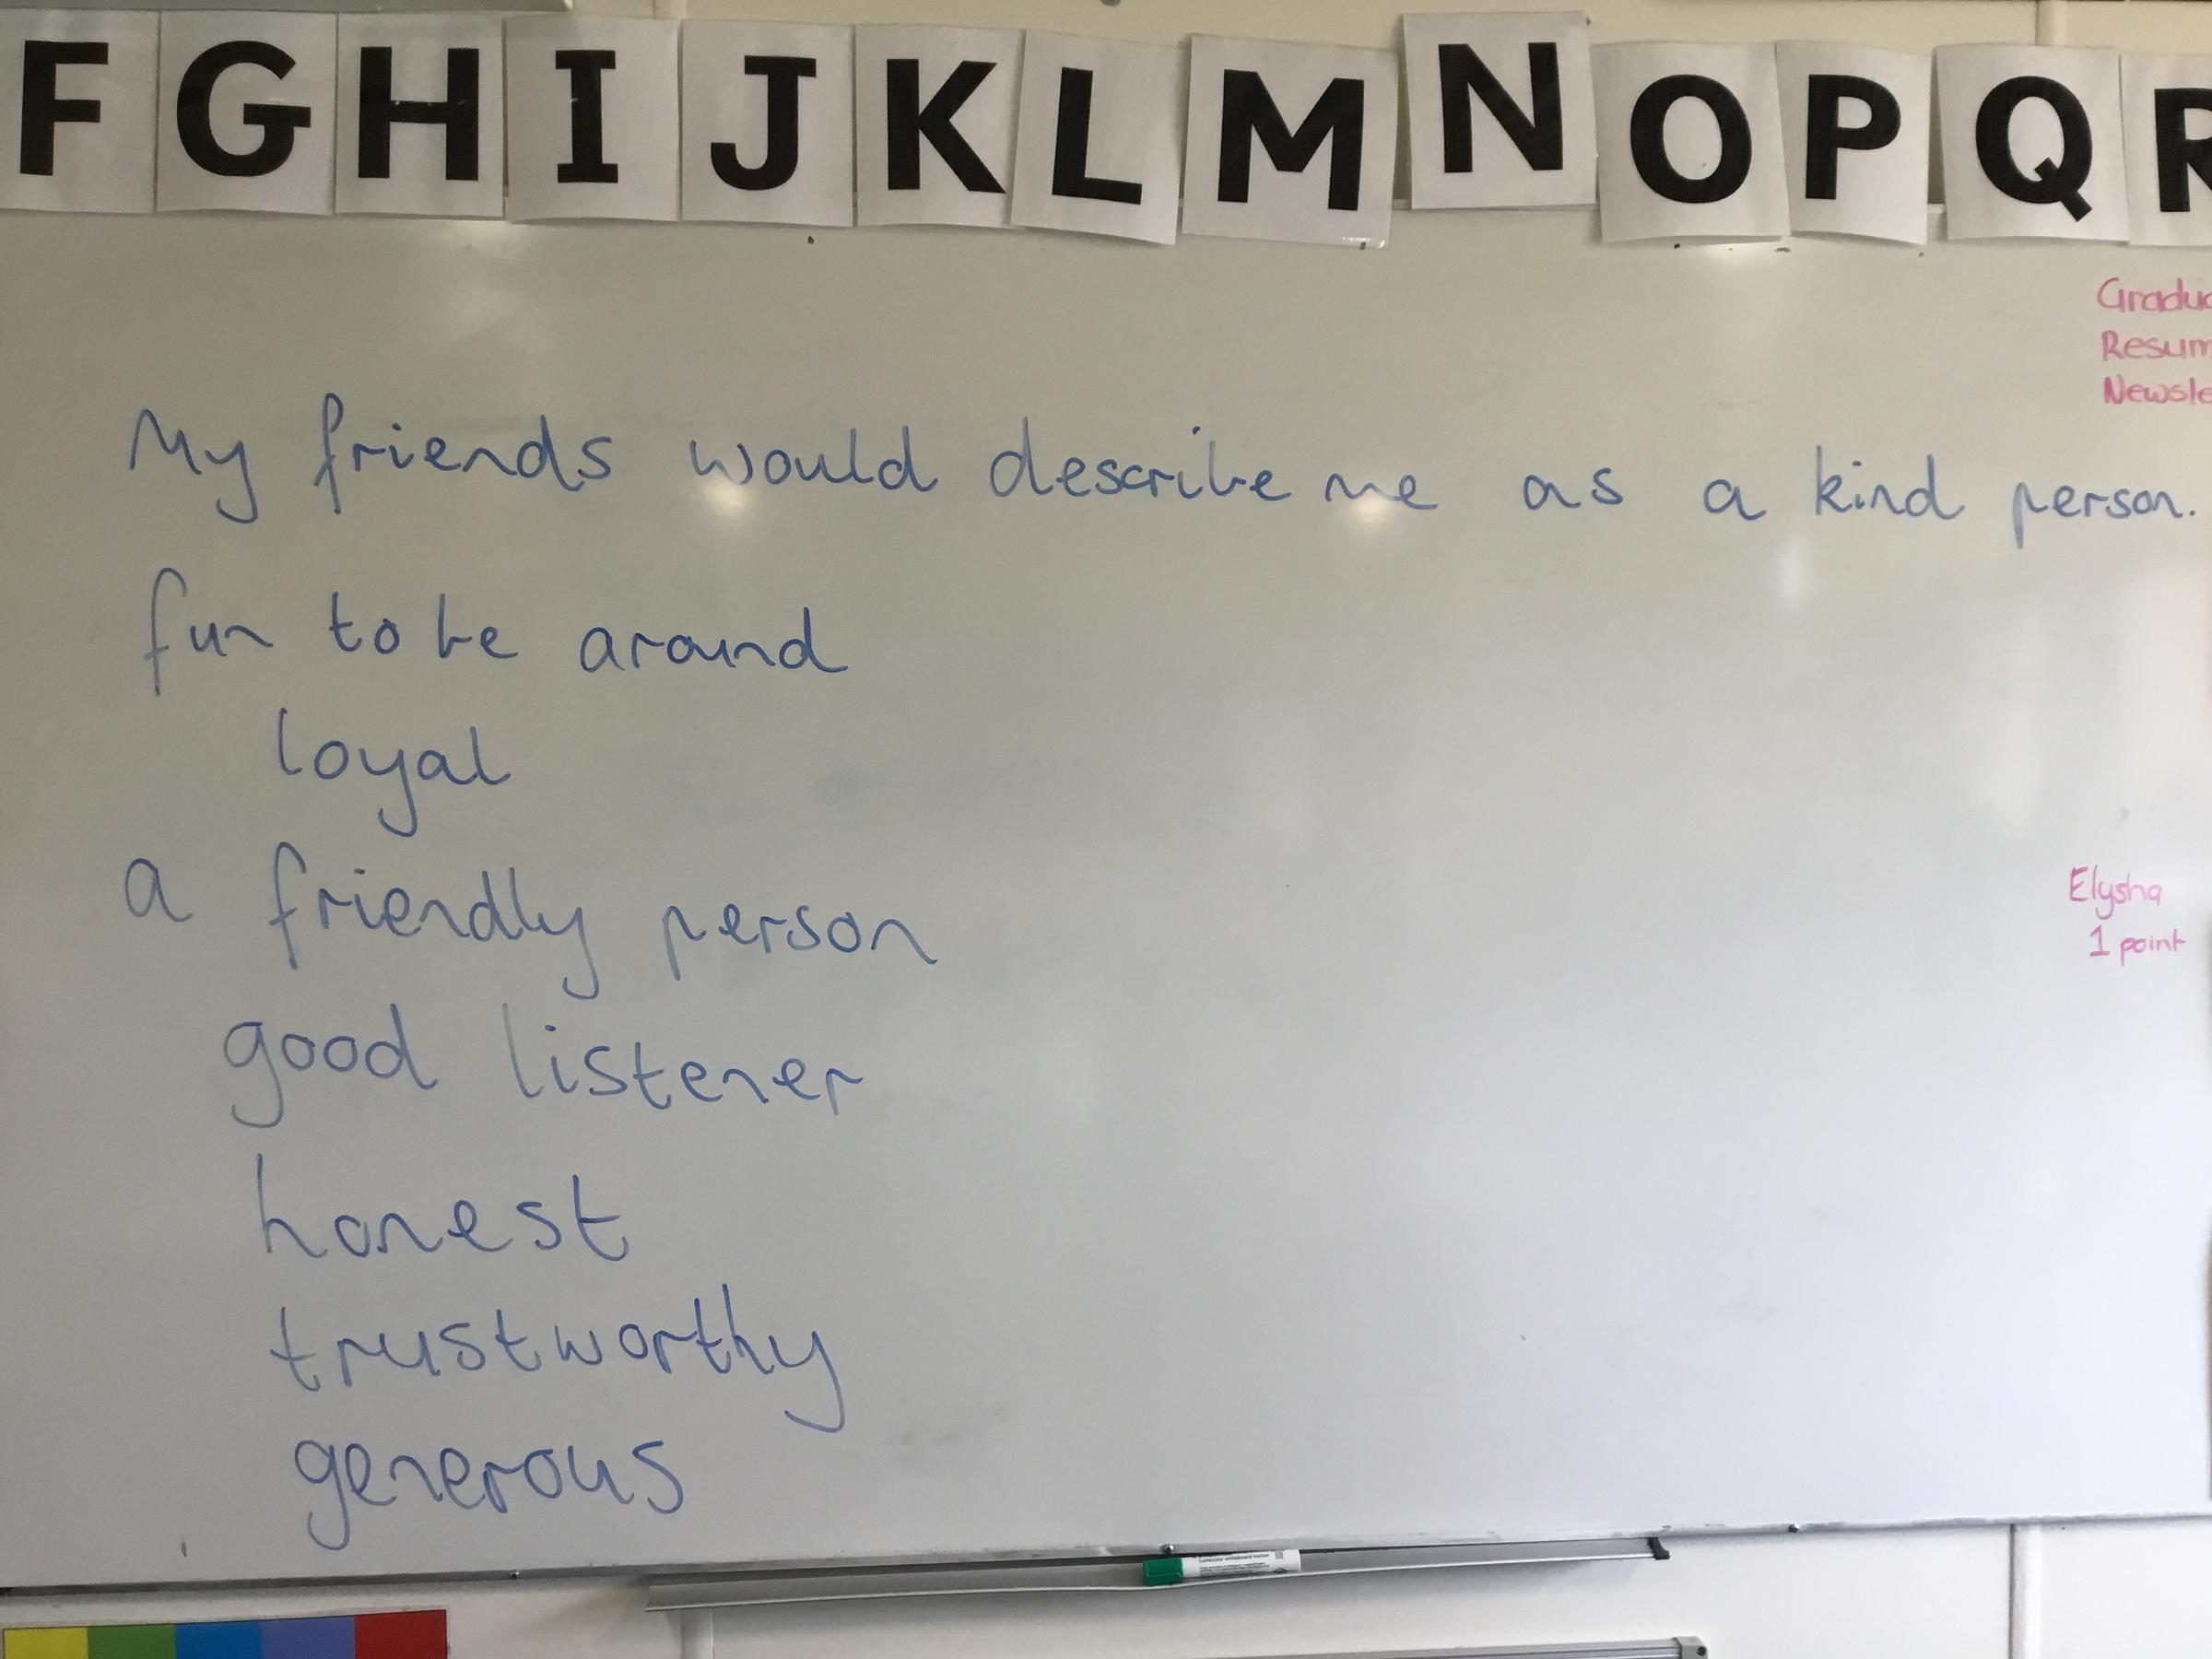 F G H I J K L M N O P Q R
Gradua
Resum
Newsle
My friends would describe me as a kind person.
fun to be around
loyal
a friendly person
Elysha
1 point
good listener
honest
trustworthy
generous